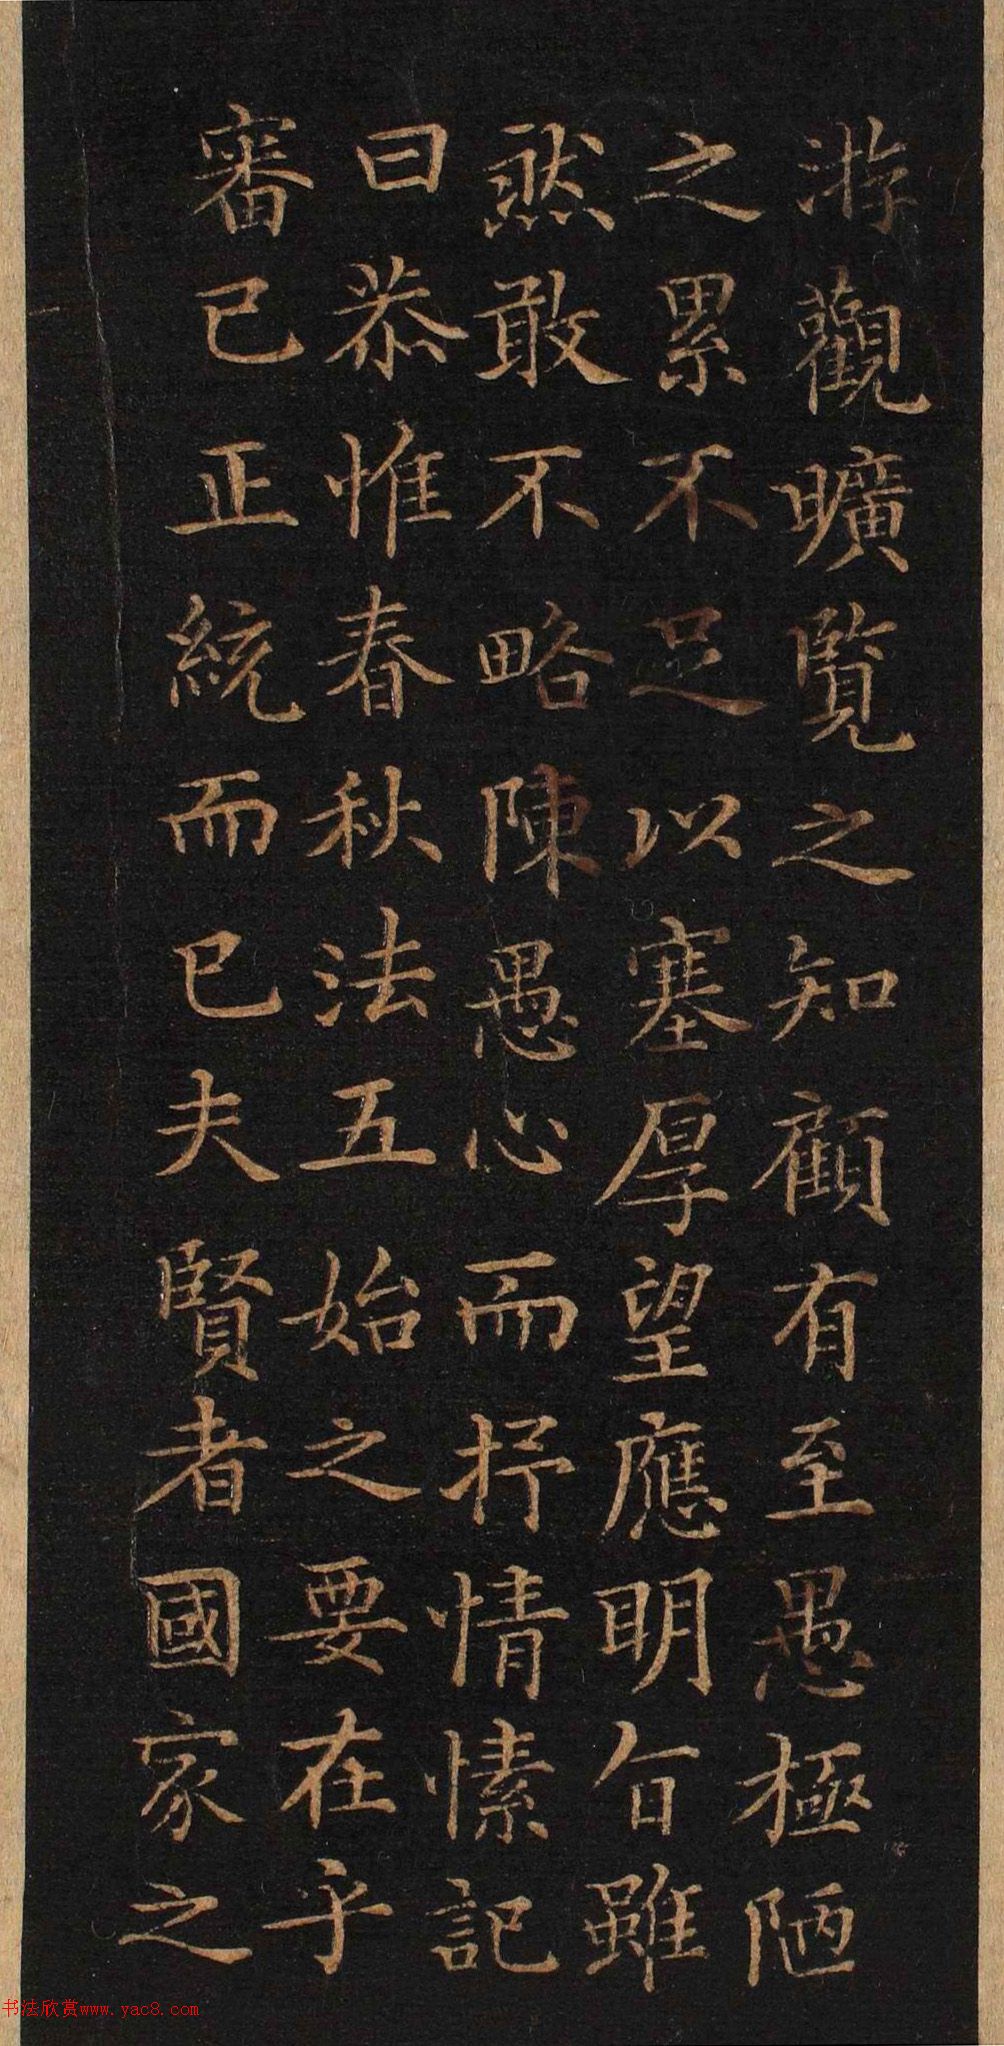 游觀曠覽之知顧有至愚極陋
之累不足以塞厚望應明旨雖
然敢不略陳愚心而抒情愫記
曰恭惟春秋法五始之要在乎
審已正統而已夫賢者國家之
书法欣赏www.yac8.com